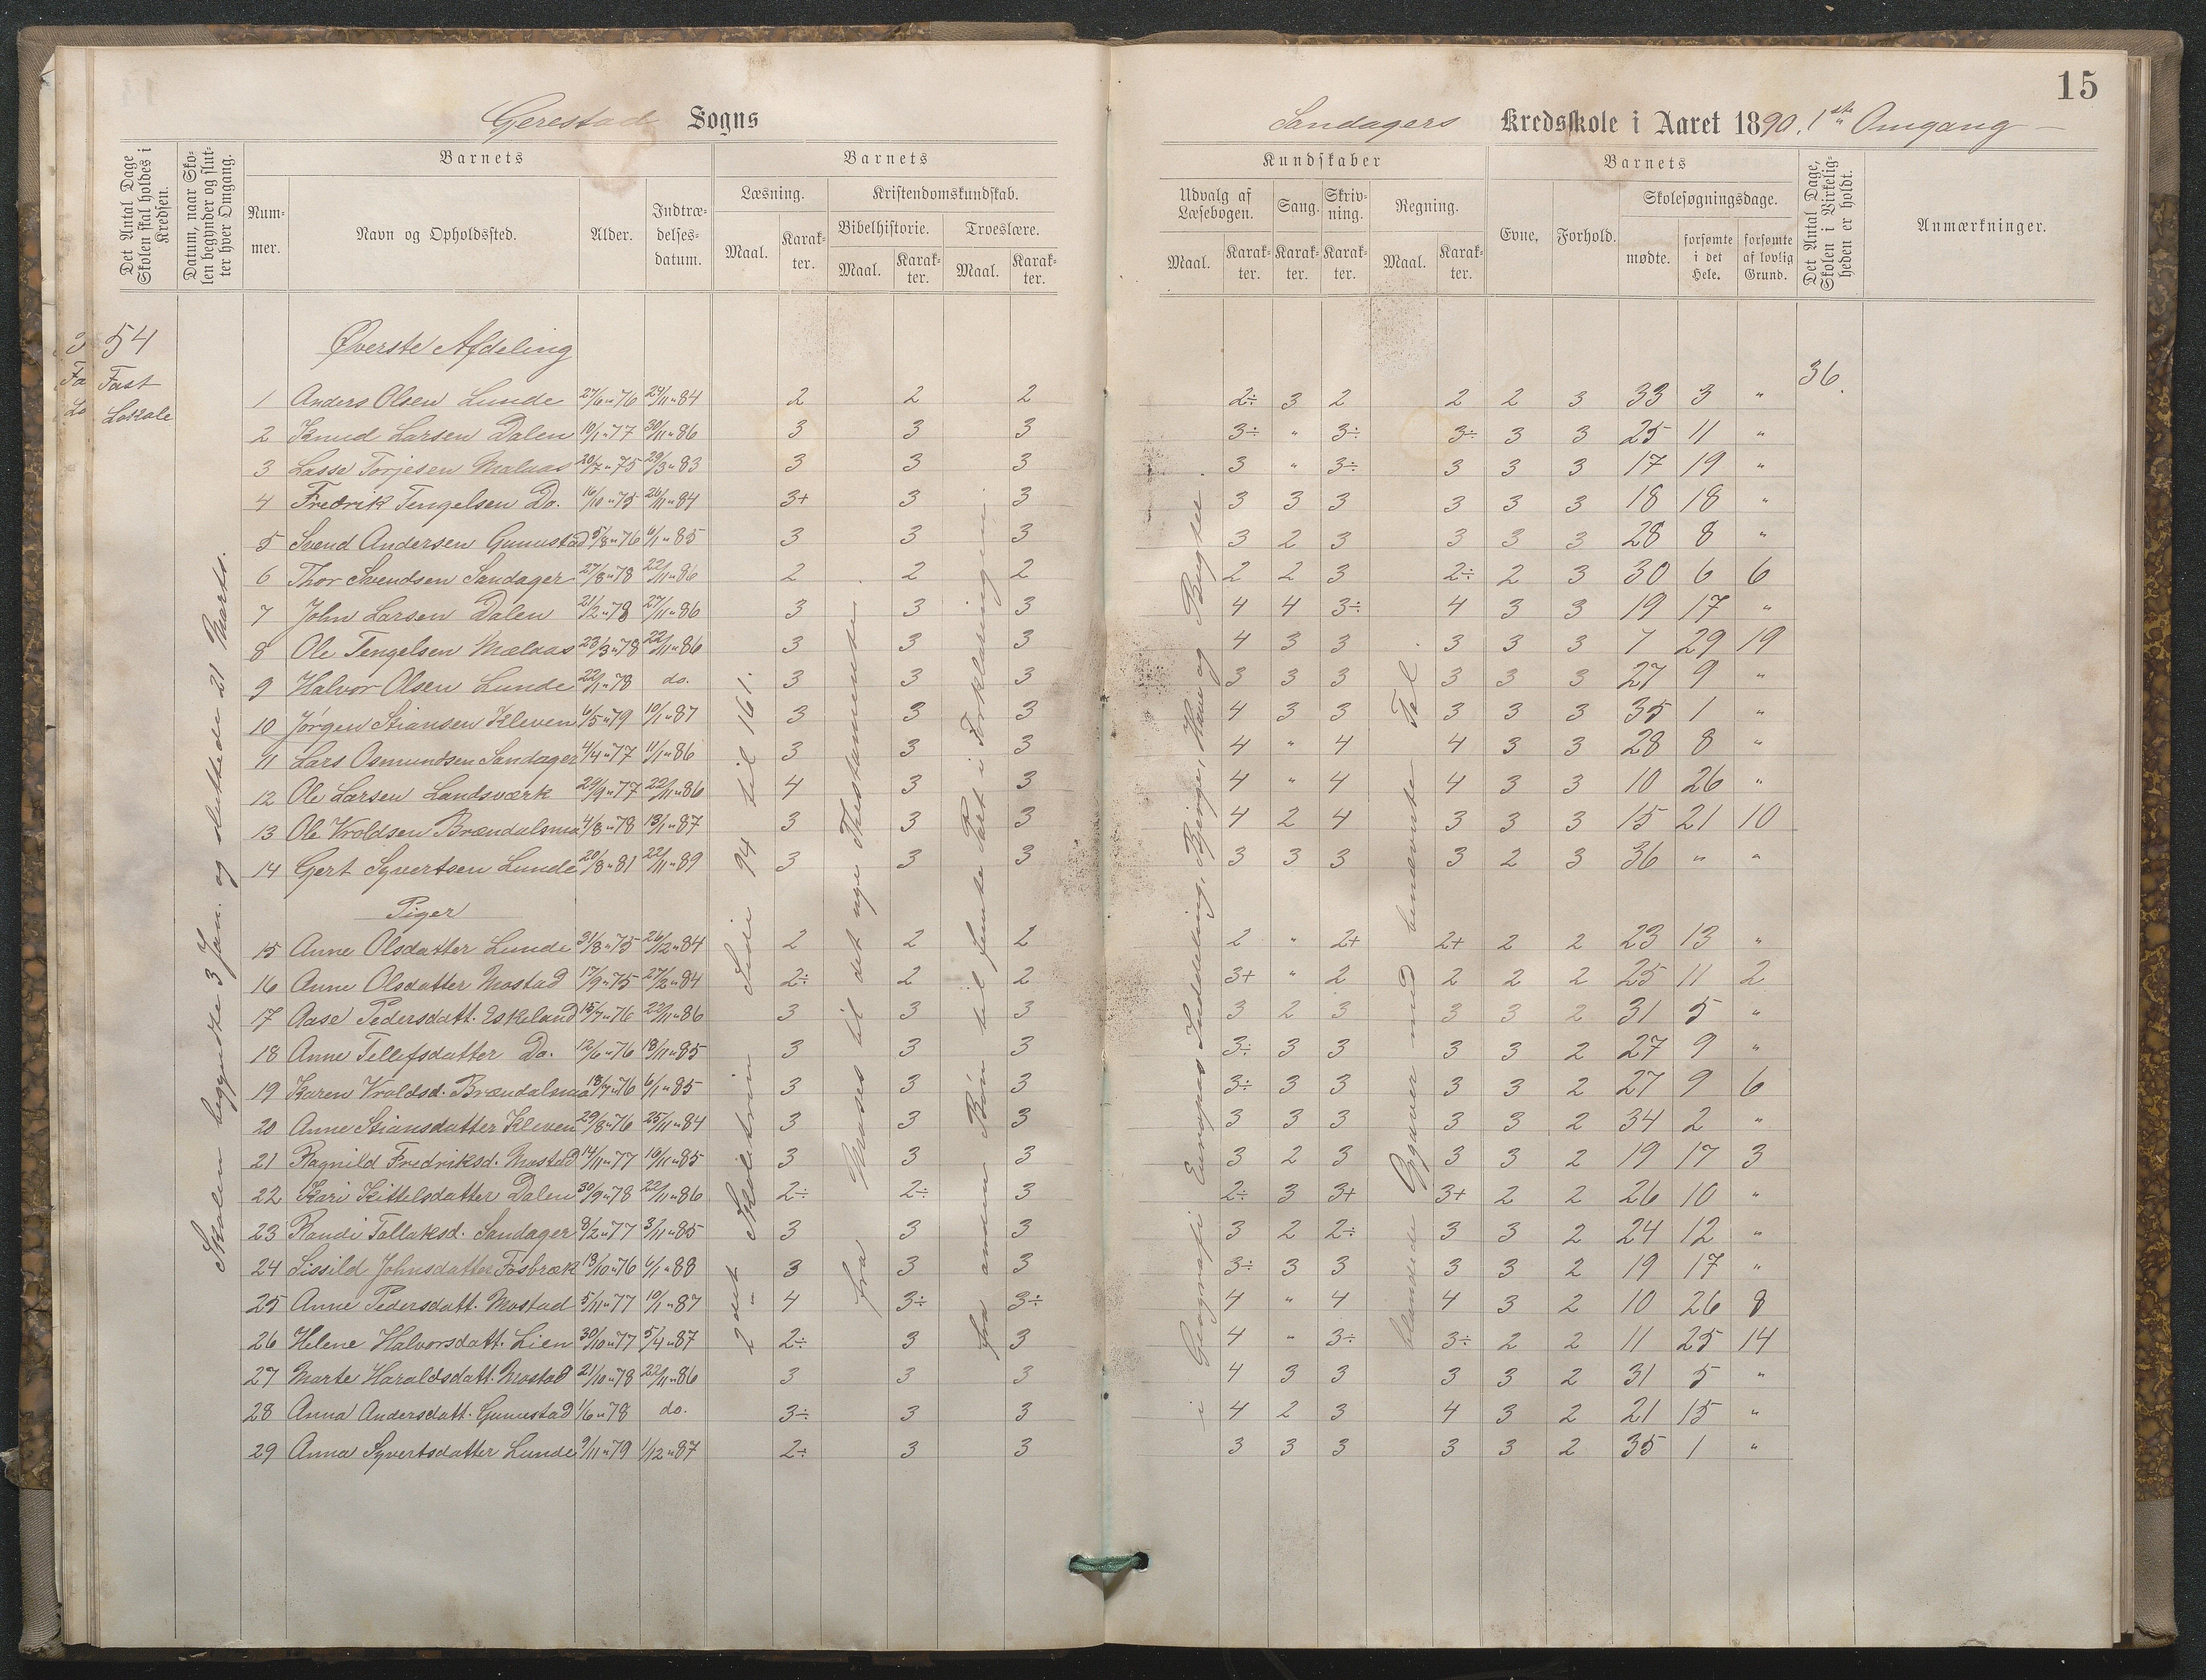 15
Gerestad Sogns
Sandagers Kredsskole i Aaret 1890. 1ste Omgang
Det Antal Dage Skolen skal holdes i Kredsen.
Datum, naar Skolen begynder og slutter hver Omgang.
Barnets
Nummer.
Navn og Opholdssted.
Alder.
Indtrædelsesdatum.
Barnets
Læsning.
Maal.
Karakter.
Kristendomskundskab.
Bibelhistorie.
Maal.
Karakter.
Troeslære.
Maal.
Karakter.
Kundskaber
Udvalg af Læsebogen.
Maal.
Karakter.
Sang.
Karakter.
Skrivning.
Karakter.
Regning.
Maal.
Karakter.
Barnets
Evne.
Forhold.
Skolesøgningsdage.
mødte.
forsømte i det Hele.
forsømte af lovlig Grund.
Det Antal Dage, Skolen i Virkeligheden er holdt.
Anmærkninger.
54
Fast
Lokale
Skolen begyndte 3 Jan. og sluttede 21 Marts.
Øverste Afdeling
36.
1 Anders Olsen Lunde 27/6 "76 24/11 "84 2 2 2 2÷ 3 2 2 2 3 33 3 "
2 Knud Larsen Dalen 10/1 "77 30/11 "86 3 3 3 3÷ " 3÷ 3÷ 3 3 25 11 "
3 Lasse Torjesen Malaas 20/7 "75 29/3 "83 3 3 3 3 " 3÷ 3 3 3 17 19 "
4 Fredrik Tengelsen Do. 16/10 "75 26/11 "84 3+ 3 3 3 3 3 3 3 3 18 18 "
5 Svend Andersen Gunustad 5/8 "76 6/1 "85 3 3 3 3 2 3 3 3 3 28 8 "
6 Thor Svendsen Sandager 27/8 "78 22/11 "86 2 2 2 2 2 3 2÷ 2 3 30 6 6
7 John Larsen Dalen 21/2 "78 27/11 "86 3 3 3 4 4 3÷ 4 3 3 19 17 "
8 Ole Tengelsen Mælaas 23/3 "78 22/11 "86 3 3 3 4 3 3 3 3 3 7 29 19
9 Halvor Olsen Lunde 22/1 "78 do. 3 3 3 3 3 3 3 3 3 27 9 "
10 Jørgen Stiansen Kleven 6/5 "79 10/1 "87 3 3 3 4 3 3 3 3 3 35 1 "
11 Lars Osmundsen Sandager 4/4 "77 11/1 "86 3 3 3 4 " 4 4 3 3 28 8 "
12 Ole Larsen Landsværk 29/9 "77 22/11 "86 4 3 3 4 " 4 4 3 3 10 26 "
13 Ole Vroldsen Brændalsmo 4/8 "78 13/1 "87 3 3 3 4 2 4 3 3 3 15 21 10
14 Gert Syvertsen Lunde 20/8 "81 22/11 "89 3 3 3 3 3 3 3 2 3 36 " "
Piger
15 Anne Olsdatter Lunde 31/8 "75 26/12 "84 2 2 2 2 " 2+ 2+ 2 2 23 13 "
16 Anne Olsdatter Mostad 17/9 "75 27/2 "84 2÷ 2 2 3+ " 2 2 2 2 25 11 2
17 Aase Pedersdatt. Eskeland 15/7 "76 22/11 "86 3 3 3 3 2 3 3 3 2 31 5 "
18 Anne Tellefsdatter Do. 12/6 "76 18/11 "85 3 3 3 3÷ 3 3 3 3 2 27 9 "
19 Karen Vroldsd. Brændalsmo 18/7 "76 6/1 "85 3 3 3 3÷ 3 3 3 3 2 27 9 6
20 Anne Stiansdatter Kleven 29/8 "76 25/11 "84 3 3 3 3 3 3 3 3 2 34 2 "
21 Ragnild Fredriksd. Mostad 14/11 "77 16/11 "85 3 3 3 3 2 3 3 3 2 19 17 3
22 Kari Kittelsdatter Dalen 30/9 "78 22/11 "86 2÷ 2÷ 3 2÷ 3 3+ 3+ 2 2 26 10 "
23 Randi Tallaksd. Sandager 8/2 "77 3/11 "85 3 3 3 3 2 2÷ 3 3 2 24 12 "
24 Sissild Johnsdatter Fosbræk 13/10 "76 6/1 "88 3 3 3 3÷ 3 3 3 3 2 19 17 "
25 Anne Pedersdatt. Mostad 5/11 "77 10/1 "87 4 3÷ 3÷ 4 " 4 4 3 2 10 26 8
26 Helene Halvorsdatt. Lien 30/10 "77 5/4 "87 2÷ 3 3 4 " 3÷ 3÷ 2 2 11 25 14
27 Marte Haraldsdatt. Mostad 21/10 "78 22/11 "86 3 3 3 4 3 3 3 3 2 31 5 "
28 Anna Andersdatt. Gunustad 1/6 "78 do. 3÷ 3 3 4 2 3 4 3 2 21 15 "
29 Anna Syvertsdatter Lunde 9/11 "79 1/12 "87 2÷ 3 3 3 3 3 3 3 2 35 1 "
2det Skoletrin Side 94 til 161.
fra Moses til det nye Thestamente.
fra anden Bøn til femte Part i Forklaringen.
i Geografi Europas Inddeling, Bjerge, Have og Bugter.
blandede Opgaver med benævnte Tal.